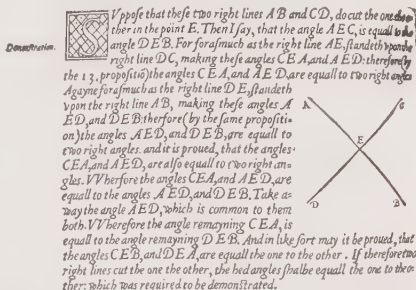 Suppose that these two right lines AB and CD, do cut the one the o-
ther in the point E. Then I say, that the angle AEC, is equall to the
Demonstration.
angle DEB. For forasmuch as the right line AE, standeth vpon the
right line DC, making these angles CEA, and AED: therefore by
the 13. propositiō) the angles CEA, and AED, are equall to two right angles
Agayne forasmuch as the right line DE, standeth
vpon the right line AB, making these angles A
ED, and DEB: therfore (by the same propositi-
on) the angles AED, and DEB, are equall to
two right angles. and it is proued, that the angles
CEA, and AED, are also equall to two right an-
gles. VVherfore the angles CEA, and AED, are
equall to the angles AED, and DEB. Take a-
way the angle AED, which is common to them
both. VVherefore the angle remayning CEA, is
equall to the angle remayning DEB. And in like sort may it be proued, that
the angles CEB, and DEA, are equall the one to the other. If therefore two
right lines cut the one the other, the hed angles shalbe equall the one to the o-
ther: which was required to be demonstrated.
A C
E
D B